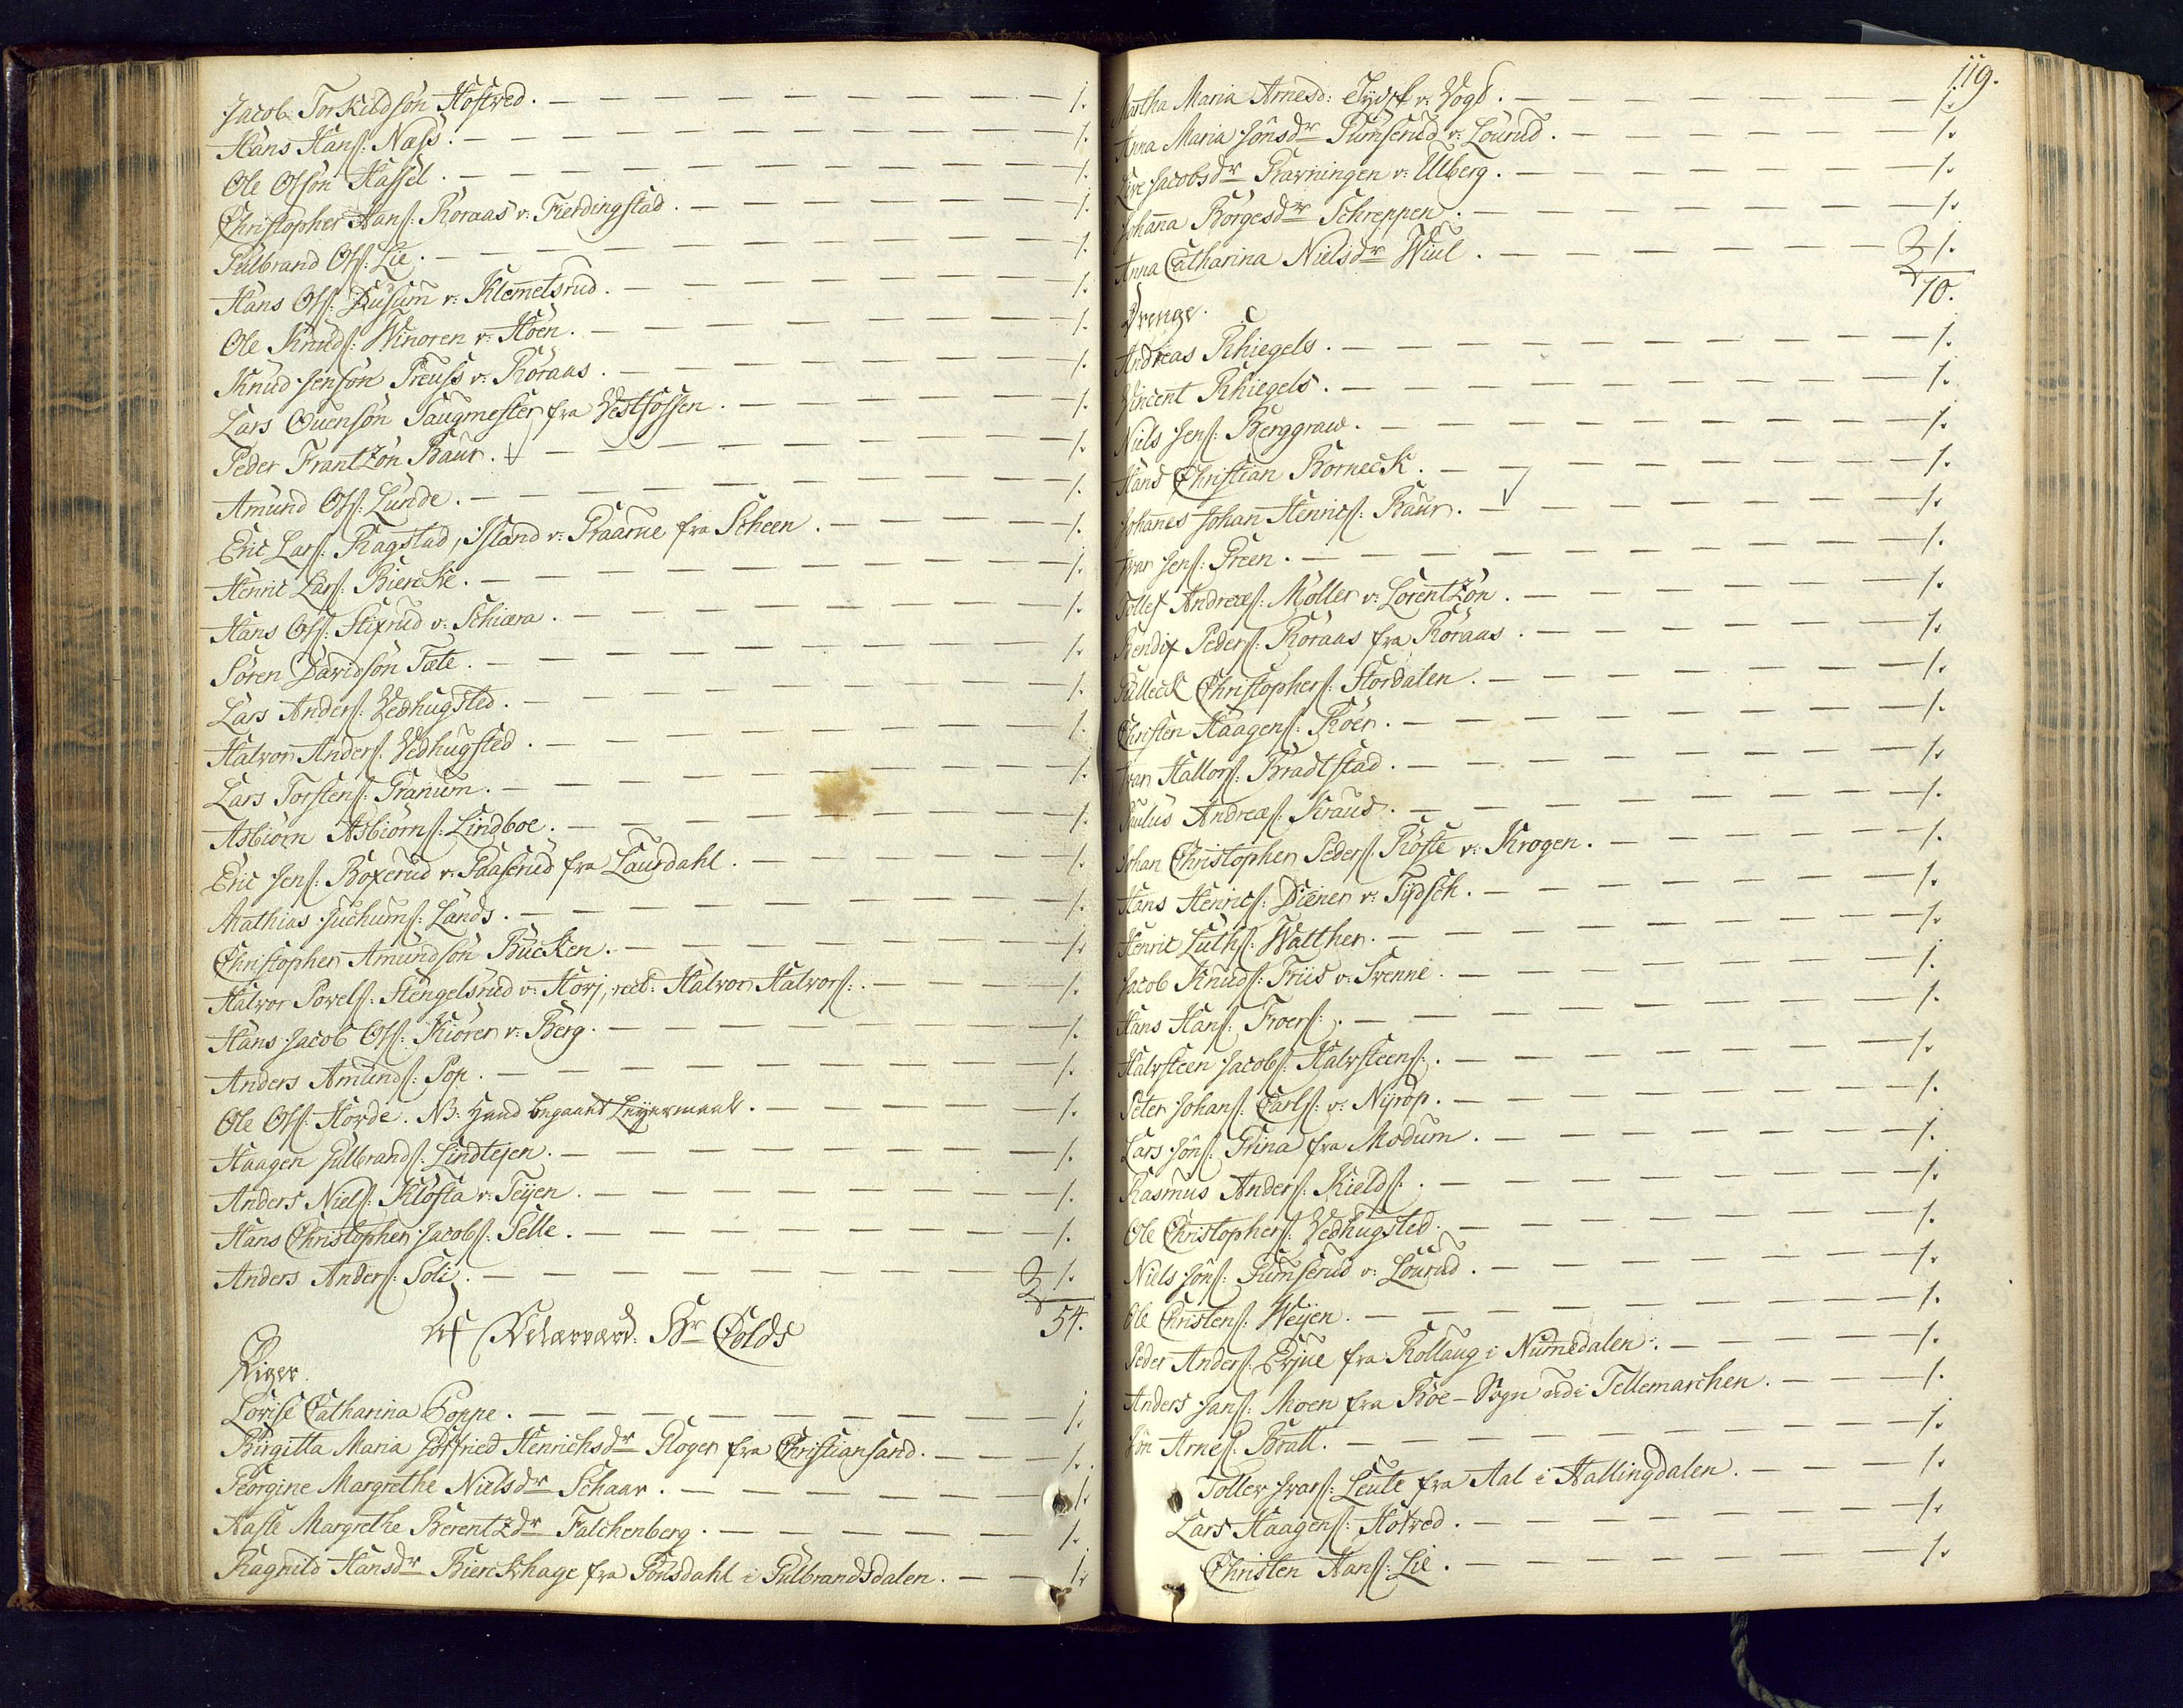 Jacob Torkildsøn Hostved. — 1.
Hans Hans: Næss. — 1.
Ole Olsøn Hassel. — 1.
Christopher Hans: Røraas v: Fierdingstad. — 1.
Gulbrand Ols: Lie. — 1.
Hans Ols: Dusum v: Klemmetsrud. — 1.
Ole Knuds: Winoren v: Hoen. — 1.
Knud Jensøn Preuss v: Røraas. — 1.
Lars Ovensøn Saugmester fra Vestfossen. — 1.
Peder Frantzøn Baur. — 1.
Amund Ols: Lunde. — 1.
Eric Lars: Ragstad, Island v: Praarne fra Scheen. — 1.
Henric Lars: Biercke. — 1.
Hans Ols: Stixrud v: Schiæra. — 1.
Søren Davidsøn Tæte. — 1.
Lars Anders: Vedhugsted. — 1.
Halvor Anders: Vedhugsted. — 1.
Lars Torstens: Granum. — 1.
Asbiørn Asbiørns: Lindboe. — 1.
Eric Jens: Boxerud v: Paaserud fra Laurdahl. — 1.
Mathias Juchums: Lands. — 1.
Christopher Amundsøn Bucken. — 1.
Halvor Povels: Stengelsrud v: Horj, rect: Halvor Halvors: — 1.
Hans Jacob Ols: Kiører v: Berg. — 1.
Anders Amunds: Pop. — 1.
Ole Ols: Horde. NB: Hand begaaet Leyermaal. — 1.
Haagen Gulbrands: Lindtejen. — 1.
Anders Niels: Klofta v: Teijen. — 1.
Hans Christopher Jacobs: Selle. — 1.
Anders Anders: Soli. — 1.
54.
Af Hr Colds
Piger.
Lovise Catharina Poppe. — 1.
Birgitta Maria Gotfried Henrichsdr Ploger fra Christiansand. — 1.
Georgine Margrethe Nielsdr Schaar. — 1.
Aaste Margrethe Berentzdr Falchenberg. — 1.
Ragnild Hansdr Bierckhage fra Fonsdahl i Gulbrandsdalen. — 1.
119.
Martha Maria Arnesd: Tydsk v: Vogt. — 1.
Anna Maria Jonsdr Gumserud v: Lourud. — 1.
Live Jacobsdr Ravningen v: Ulberg. — 1.
Johanna Børgesdr Schreppen. — 1.
Anna Catharina Nielsdr Wiul. — 1.
10.
Drenge.
Andreas Rhiegels. — 1.
Vincent Rhiegels. — 1.
Niels Jens: Berggraw. — 1.
Hans Christian Borneck. — 1.
Johannes Johan Henrics: Baur. — 1.
Ivar Jens: Green. — 1.
Tollef Andreæs: Møller v: Lorentzøn. — 1.
Bendix Peders: Røraas fra Røraas. — 1.
Palleck Christophers: Stordalen. — 1.
Christen Haagens: Røer. — 1.
Ivar Hallors: Bradtstad. — 1.
Paulus Andreæs: Kraus. — 1.
Johan Christopher Peders: Røste v: Krogen. — 1.
Hans Henrics: Diener v: Tydsch. — 1.
Henric Luths: Walther. — 1.
Jacob Knuds: Friis v: Svenne. — 1.
Hans Hans: Froers: — 1.
Halvsteen Jacobs: Halvsteens: — 1.
Peter Johans: Carls: v: Nyrop. — 1.
Lars Jons: Grina fra Modum. — 1.
Rasmus Anders: Kields: — 1.
Ole Christophers: Vedhugsted. — 1.
Niels Jons: Gumserud v: Lourud. — 1.
Ole Christens: Weyen. — 1.
Peder Anders: Erjue fra Rollaug i Numedalen. — 1.
Anders Jans: Moen fra Bøe-Sogn udi Tellemarchen. — 1.
Jon Arnes: Bratt. — 1.
Toller Ivars: Leute fra Aal i Hallingdalen. — 1.
Lars Haagens: Hotved. — 1.
Christen Hans: Lie. — 1.